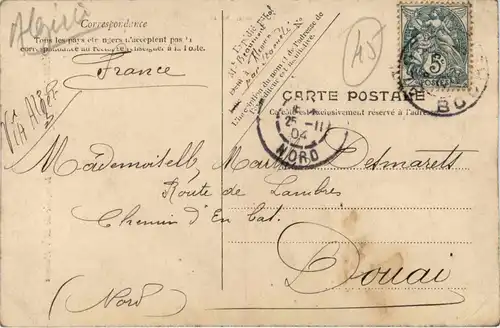 Algérie
Correspondance
Tous les pays étrangers n'acceptent pas la
correspondance au recto, se renseigner à la Poste.
France
Via Alger
L'inscription du nom et de l'adresse de
l'expéditeur est facultative.
45
5
CARTE POSTALE
Ce côté est exclusivement réservé à l'adresse
25-11
04
NORD
Mademoiselle Desmarets
Route de Lambres
Chemin d'En bat.
Douai
(Nord)